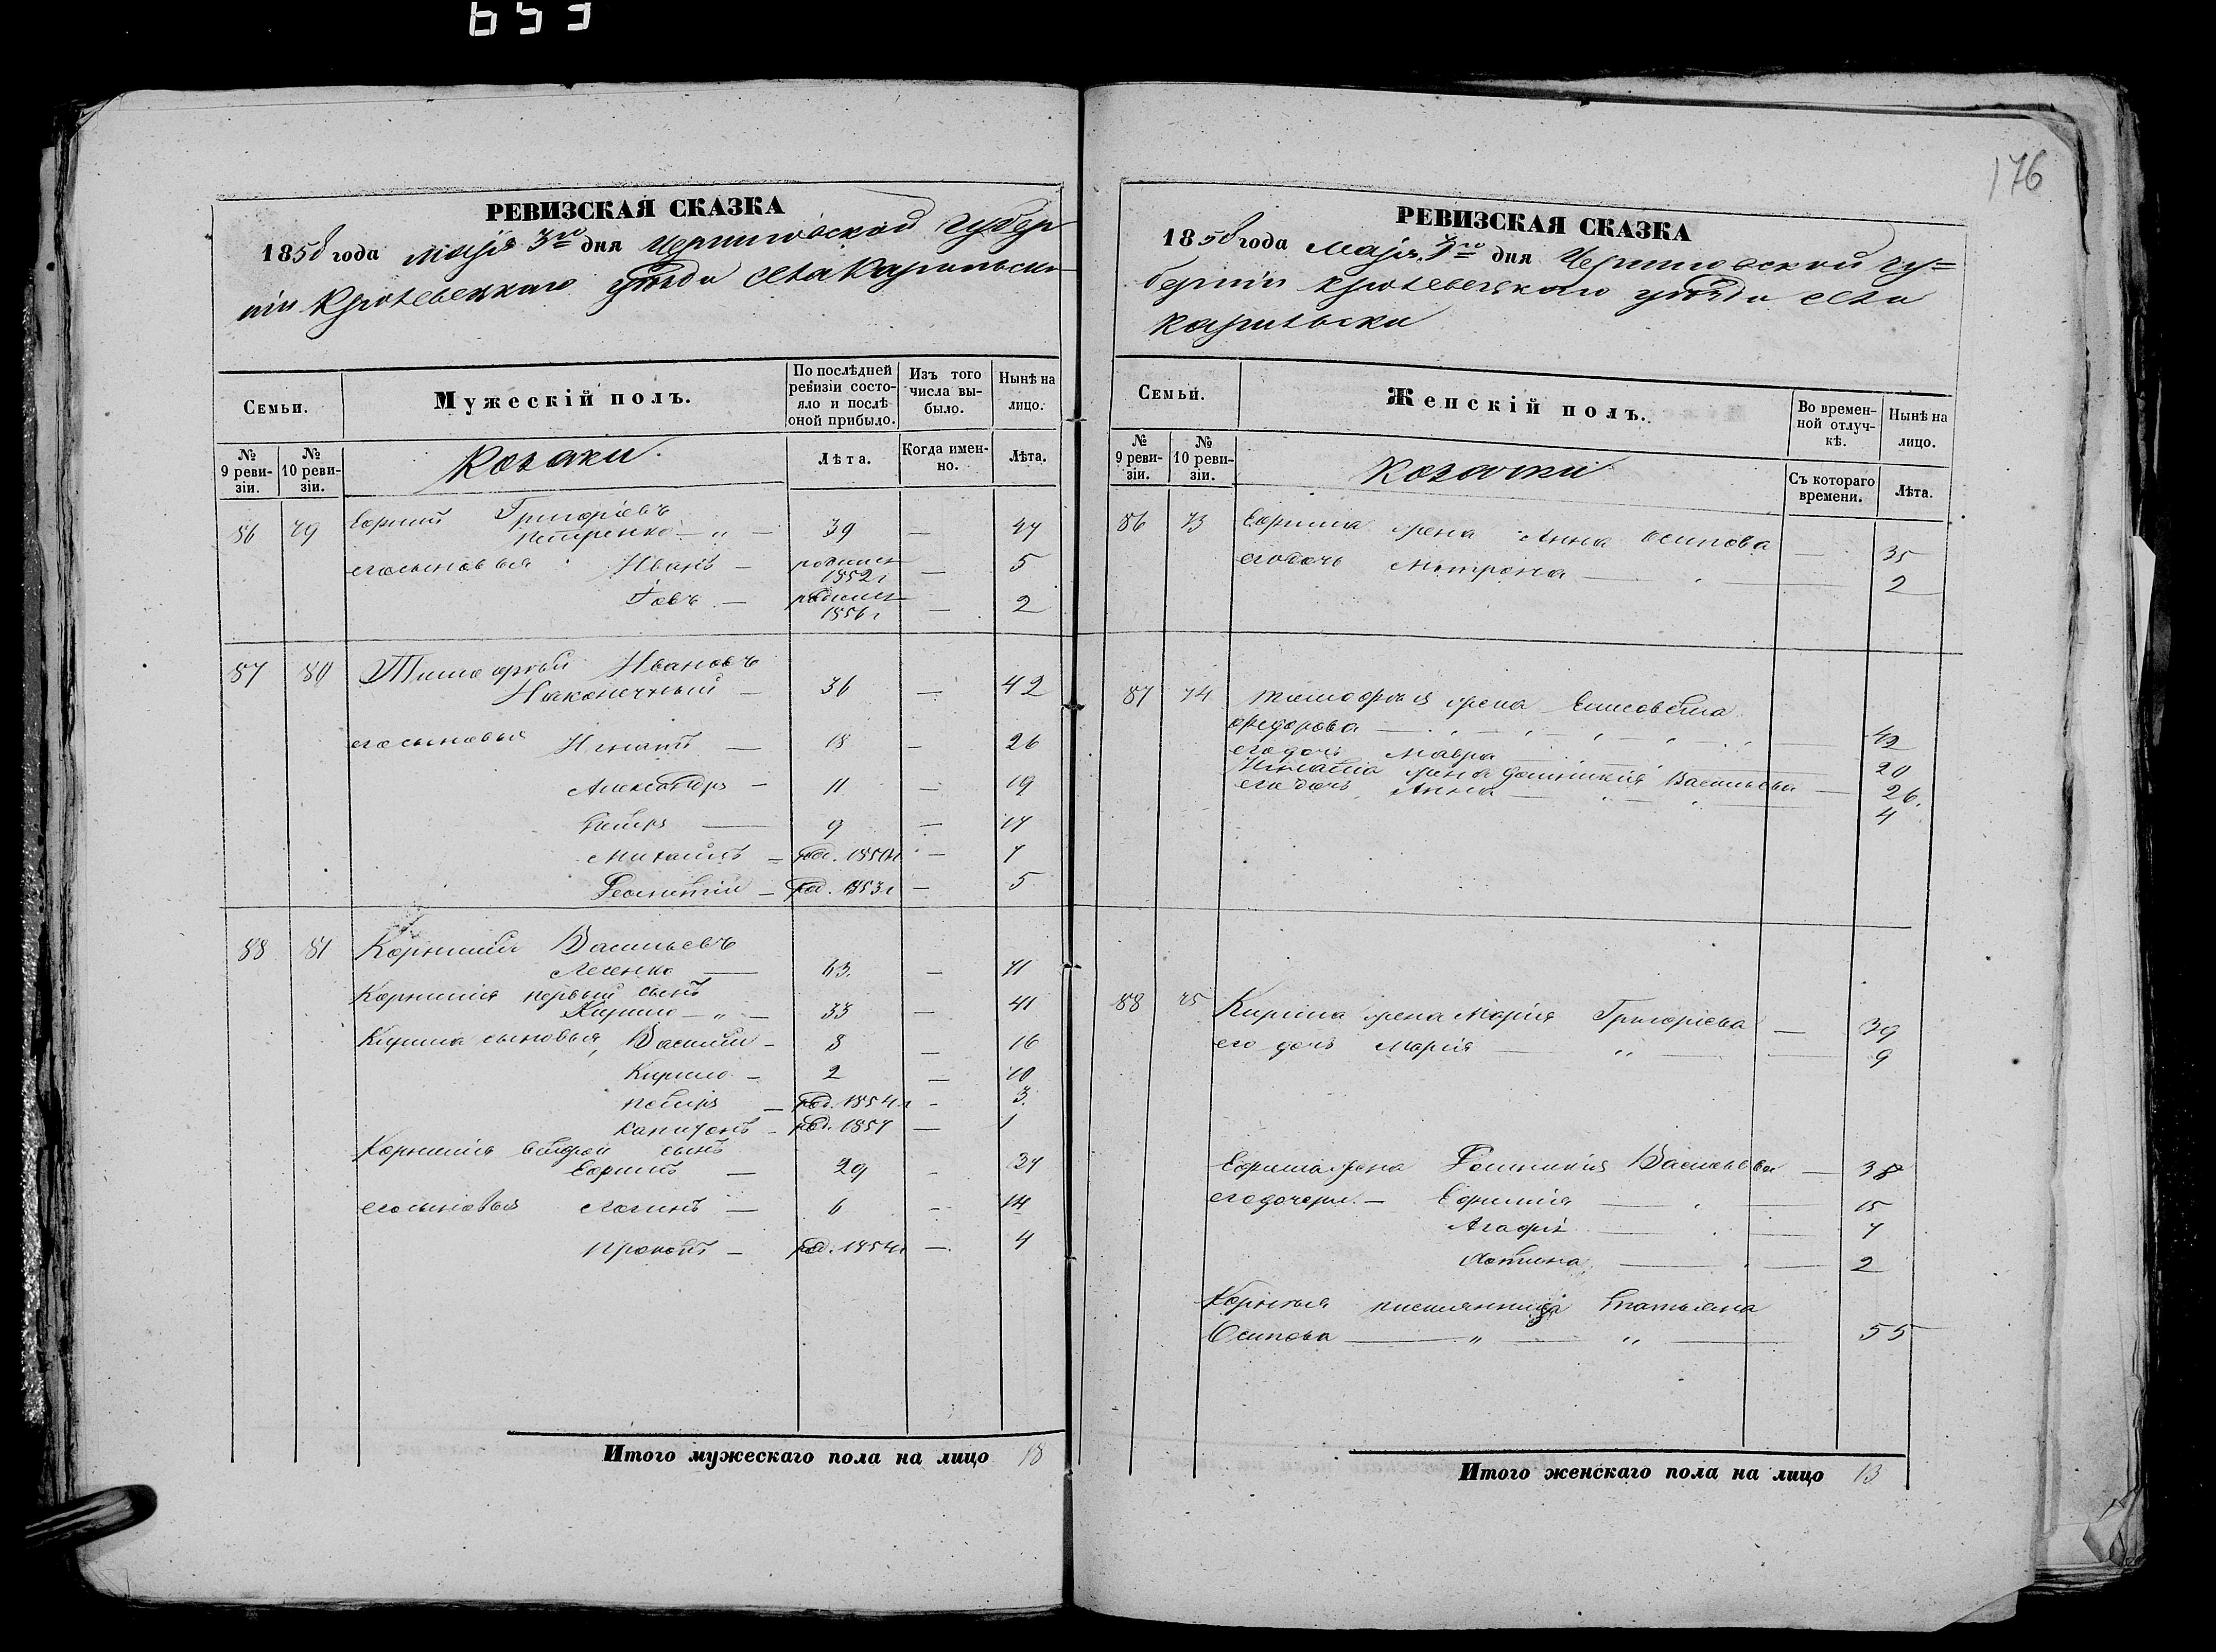 653
176
РЕВИЗСКАЯ СКАЗКА
1858 года маія 3го дня Черниговской Губер
ніи Кролевецкаго уѣзда села Карильска
Семьи.
Мужескій полъ.
По послѣдней ревизіи состояло и послѣ оной прибыло.
Изъ того числа выбыло.
Нынѣ на лицо.
№ 9 ревизіи.
№ 10 ревизіи.
Козаки.
Лѣта.
Когда именно.
Лѣта.
86 79 Ефимъ Григоріевъ
Петренко — „ — 39 — 47
его сыновья Иванъ — родился 1852 г — 5
Іовъ — родился 1856 г — 2
87 80 Тимофѣй Ивановъ
Наконечный — 36 — 42
его сыновья Игнатъ — 18 — 26
Александръ — 11 — 19
Петръ — 9 — 17
Михаилъ — род. 1850 г — 7
— род. 1853 г — 5
88 81 Корнилій Васильевъ
Лесенко — 63. — 71
Корнилія первый сынъ
Кирило — „ — 33 — 41
Кирила сыновья, Василій — 8 — 16
Кирило — 2 — 10
Петръ — род. 1854 г — 3.
Капитонъ — род. 1857 — 1
Корнилія второй сынъ
Ефимъ — 29 — 37
его сыновья Логинъ — 6 — 14
Прокопъ — род. 1854 г — 4
Итого мужескаго пола на лицо 18
РЕВИЗСКАЯ СКАЗКА
1858 года маія 3го дня Черниговской гу=
берніи Кролевецкаго уѣзда села
Карильска
Семьи.
Женскій полъ.
Во временной отлучкѣ.
Нынѣ на лицо.
№ 9 ревизіи.
№ 10 ревизіи.
Козачки
Съ котораго времени.
Лѣта.
86 73 Ефима жена Анна Осипова — 35
его дочь Мотрона — 2
87 74 Тимофѣя жена Елисовета
Федорова — 42
его дочь Мавра — 20
Игната жена Домникія Васильева — 26.
его дочь Анна — 4
88 75 Кирила жена Марія Григоріева — 39
его дочь Марія — „ — 9
Ефима жена Домникія Васильева — 38
его дочери — Ефимія — 15
Агафія — 7
— 2
Корнилія племянница Татьяна
Осипова — „ — „ — 55
Итого женскаго пола на лицо 13